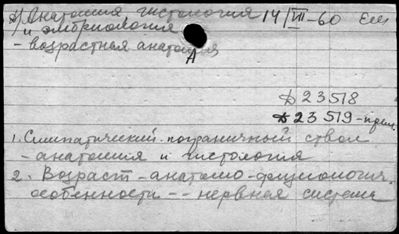 А) Анатомия гистология 14/VII-60 Еш
и эмбриология
- возрастная анатомия
А
Д 23518
Д 23519-прил.
1. Симпатический пограничный ствол
- анатомия и гистология
2. Возраст - анатомо-физиологич.
особенности - - нервная система